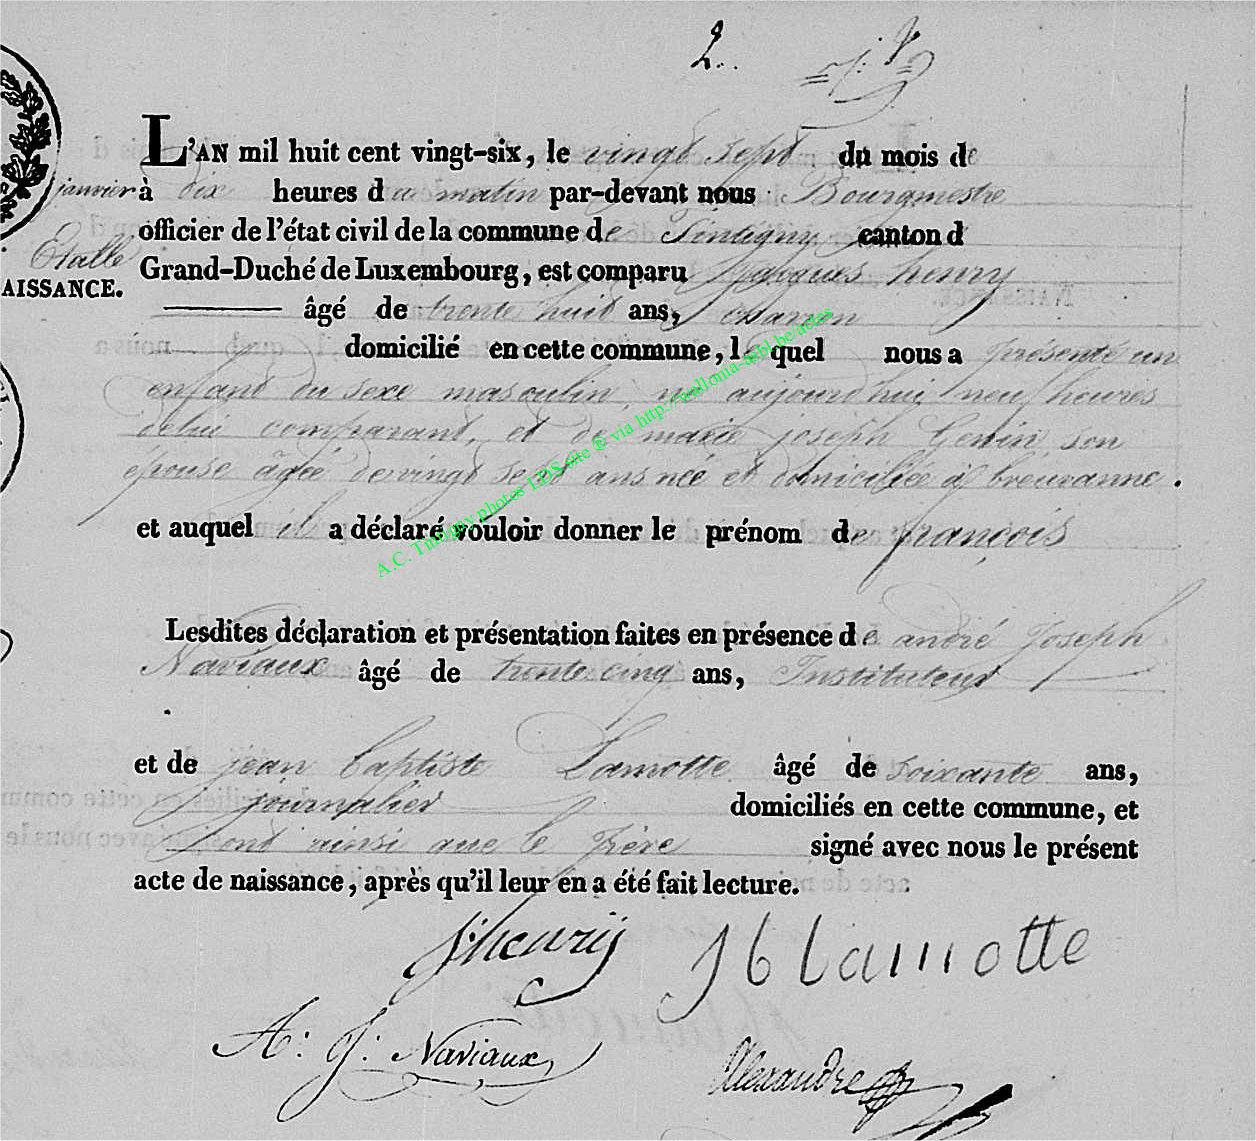 2..
L'AN mil huit cent vingt-six, le vingt sept du mois de
janvier à dix heures du matin par-devant nous Bourgmestre
officier de l'état civil de la commune de Tintigny canton d
Etalle
Grand-Duché de Luxembourg, est comparu jacques henry
AISSANCE.
âgé de trente huit ans, charron
domicilié en cette commune, lequel nous a présenté un
enfant du sexe masculin, né aujourd'hui neuf heures
delui comparant, et de marie joseph Genin son
epouse âgée devingt sept ans née et domiciliée a breuvanne.
et auquel il a déclaré vouloir donner le prénom de françois
Lesdites déclaration et présentation faites en présence de andré Joseph
Naviaux âgé de trente cinq ans, Instituteur
et de jean baptiste Lamotte âgé de soixante ans,
journalier domiciliés en cette commune, et
ont ainsi que le Père signé avec nous le présent
acte de naissance, après qu'il leur en a été fait lecture.
J:henrÿ
Jb lamotte
A: J: Naviaux
Alexandre
A.C. Tintigny photos LDS site © via http://wallonia-asbl.be/actes